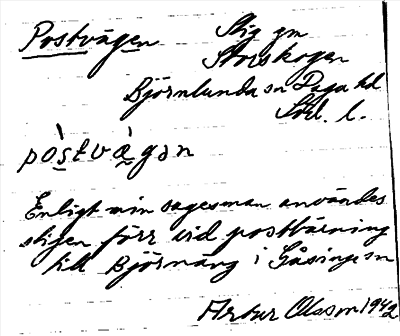 Postvägen
Stig gm
Storskogen
Björnlunda sn Daga hd
Söd. l.
pòstvà̱gən
Enligt min sagesman användes
stigen förr vid postbärning
till Björnäng i Gåsinge sn
Artur Olsson 1942